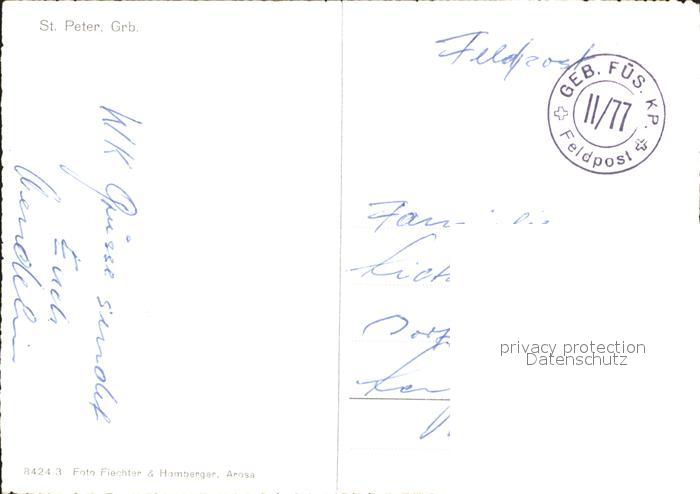 St. Peter, Grb.
WK Grüsse sendet
Euch
Wendelin
8424.3 Foto Fiechter & Homberger, Arosa
Feldpost
GEB. FÜS. KP.
II/77
Feldpost
privacy protection
Datenschutz